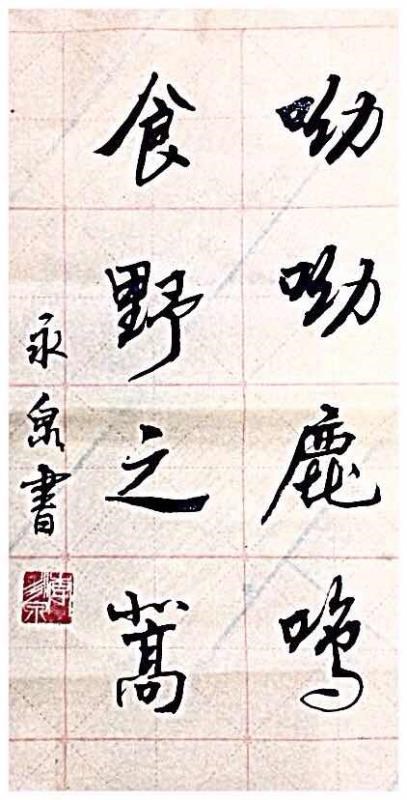 呦呦鹿鳴
食野之蒿
永泉書